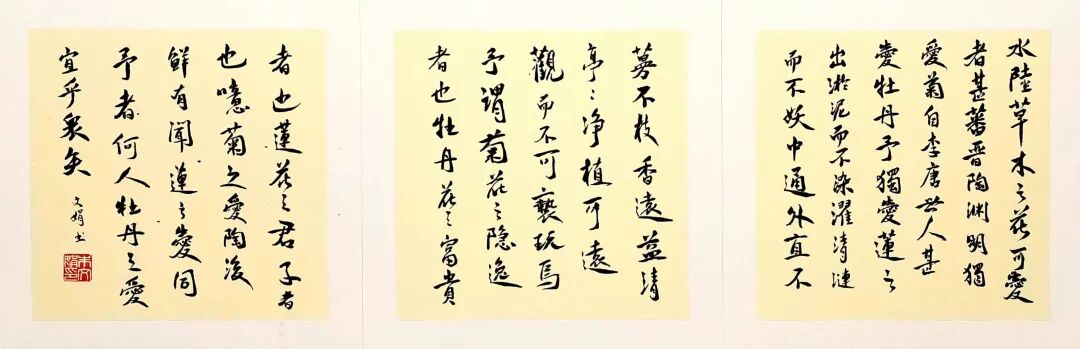 水陸草木之花可愛
者甚蕃晋陶渊明獨
愛菊自李唐世人甚
愛牡丹予獨愛蓮之
出淤泥而不染濯清漣
而不妖中通外直不
蔓不枝香遠益清
亭〻净植可遠
觀而不可褻玩焉
予謂菊花之隐逸
者也牡丹花之富貴
者也蓮花之君子者
也噫菊之愛陶後
鮮有聞蓮之愛同
予者何人牡丹之愛
宜乎衆矣
文娟书